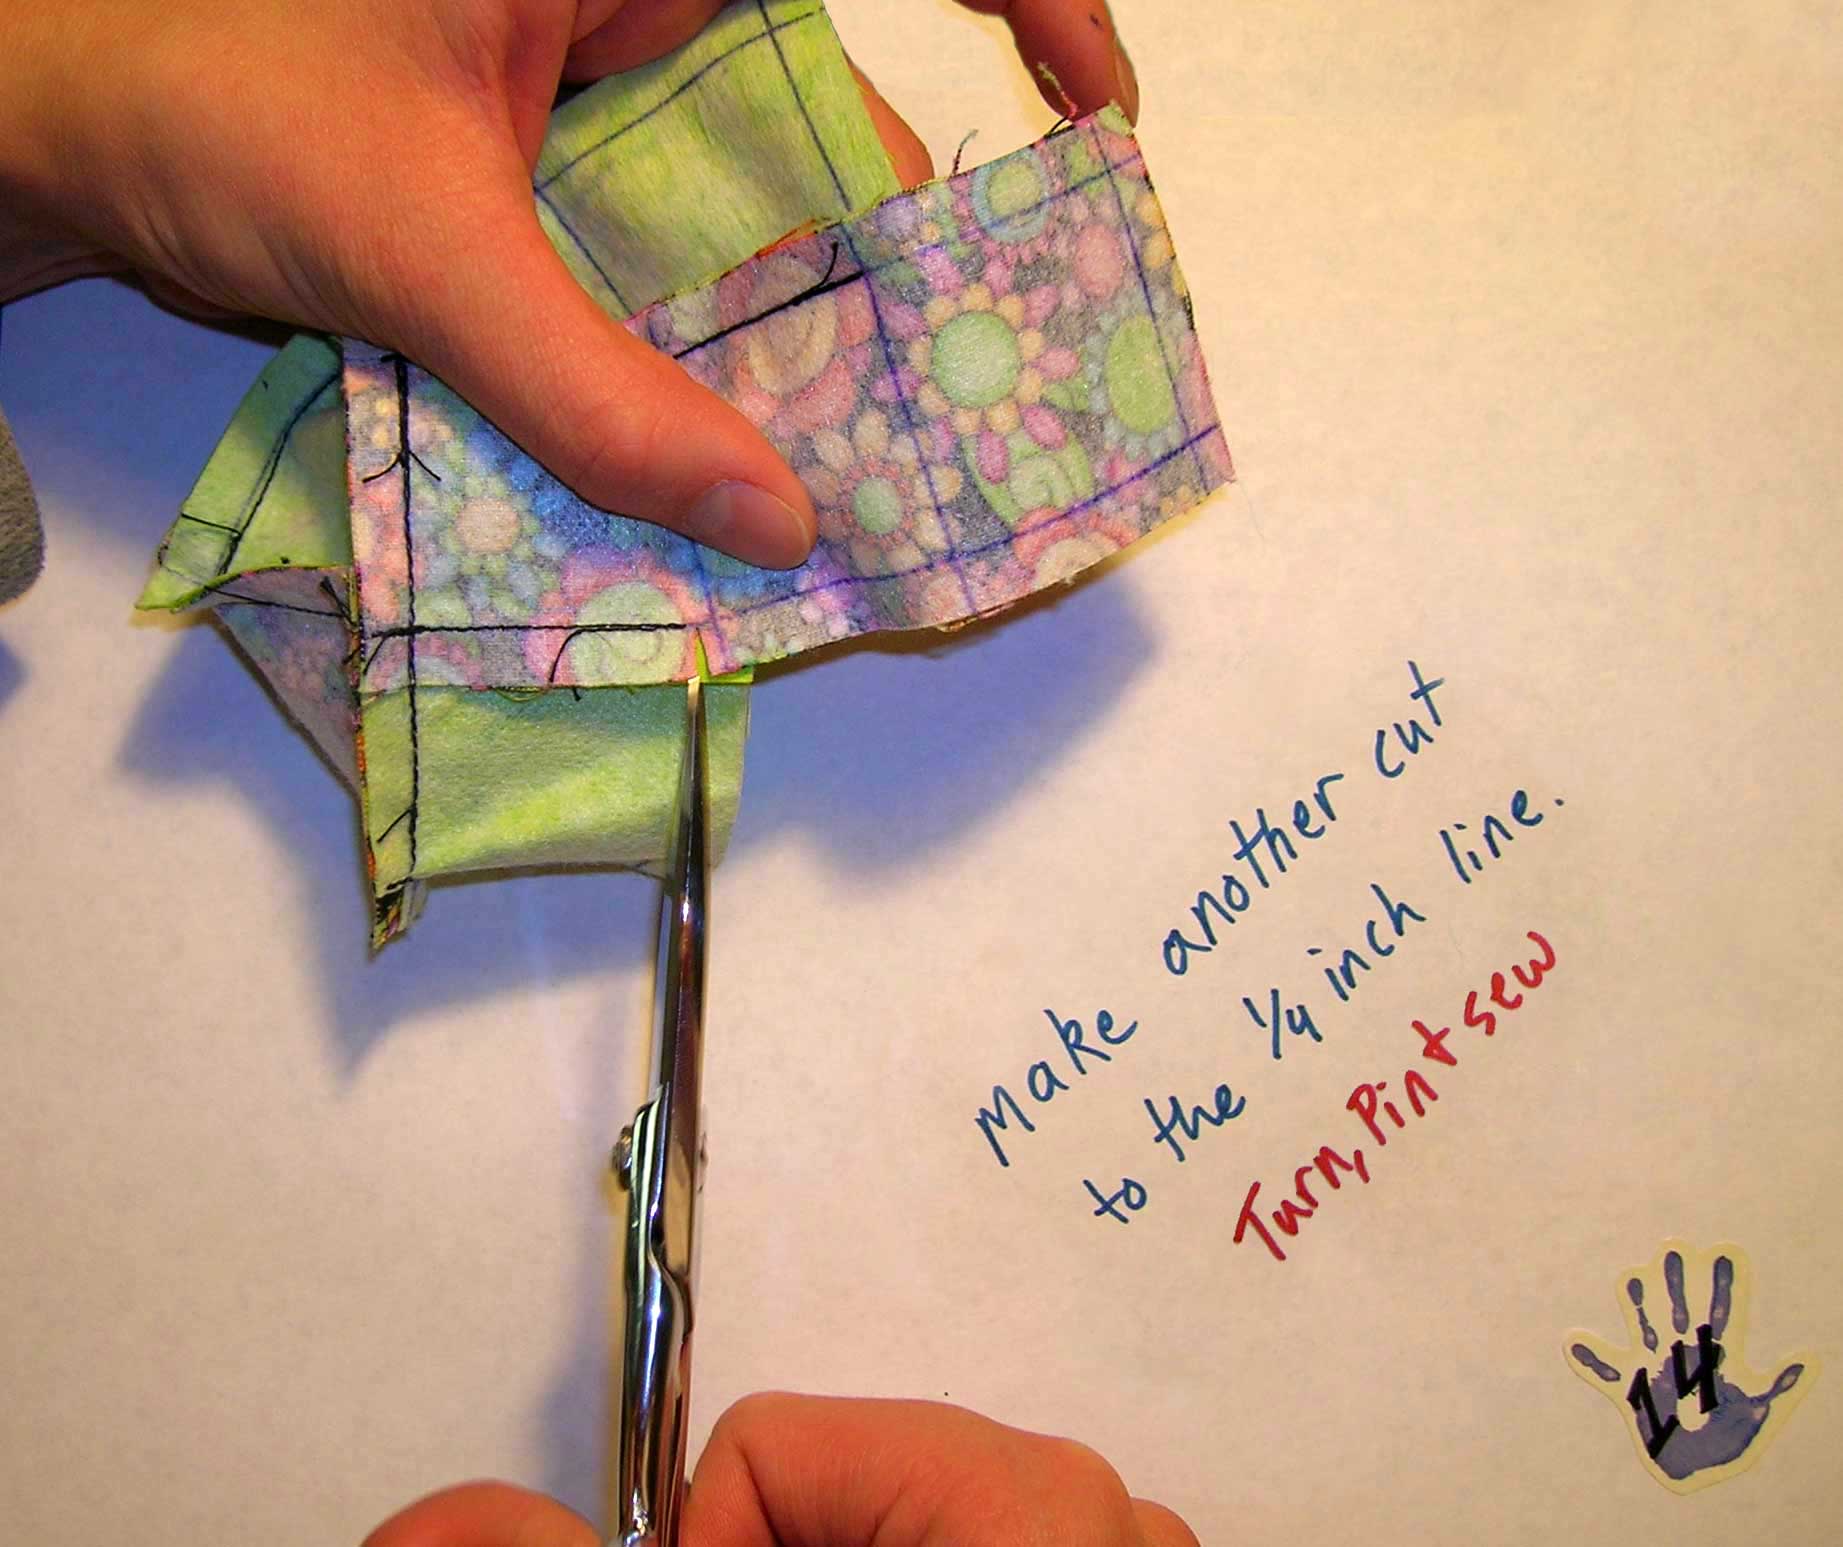 make another cut
to the 1/4 inch line.
Turn, Pin + sew
14